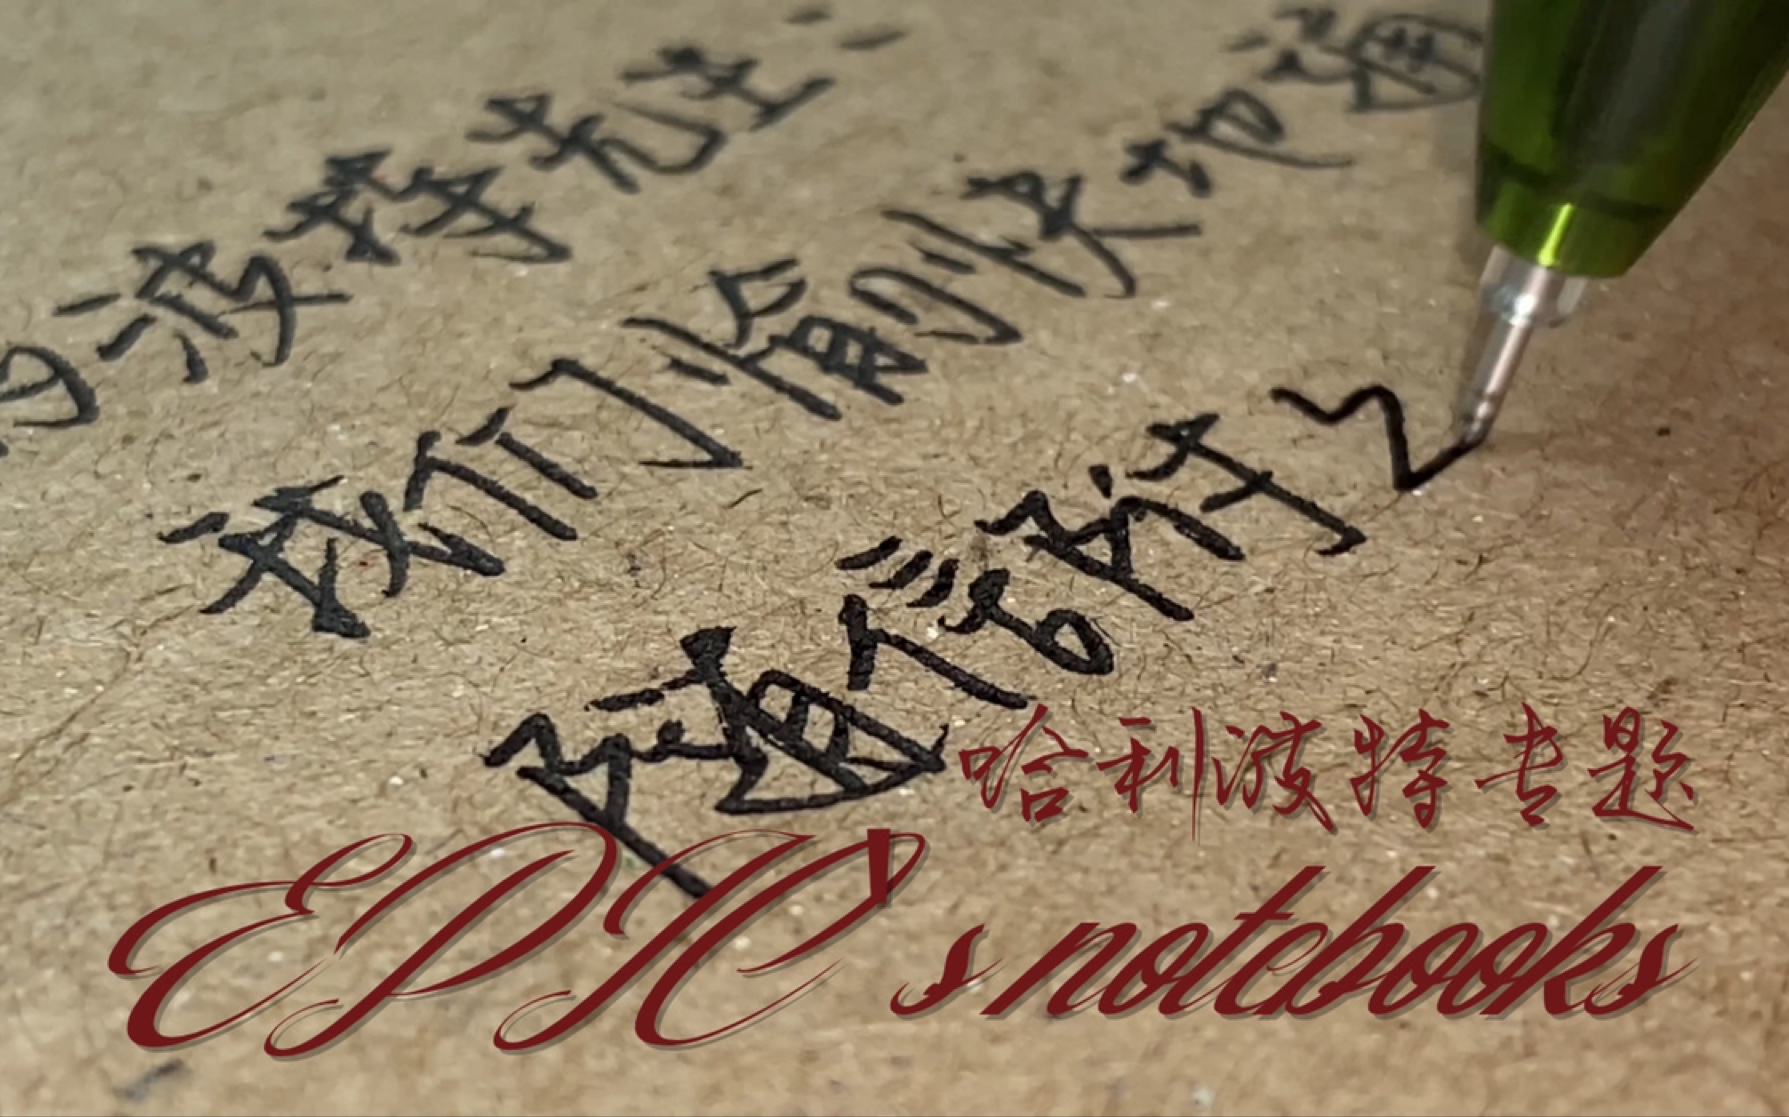 波特先生：
我们愉快地通
随信附
哈利波特专题
EPIC's notebooks